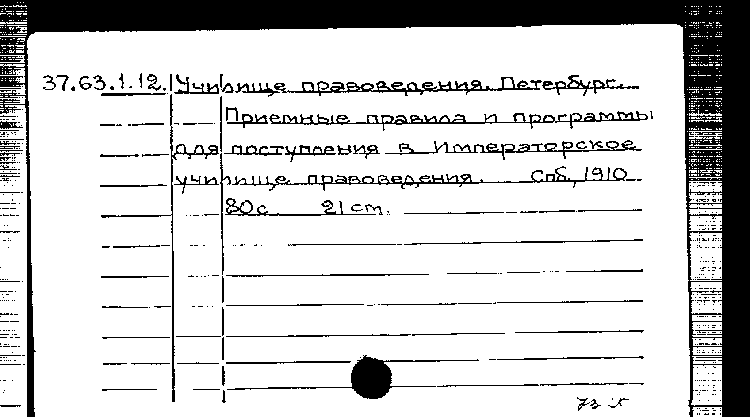 37.63.1.12. Училище правоведения. Петербург.
Приемные правила и программы
для поступления в Императорское
училище правоведения. Спб., 1910
80с. 21 ст.